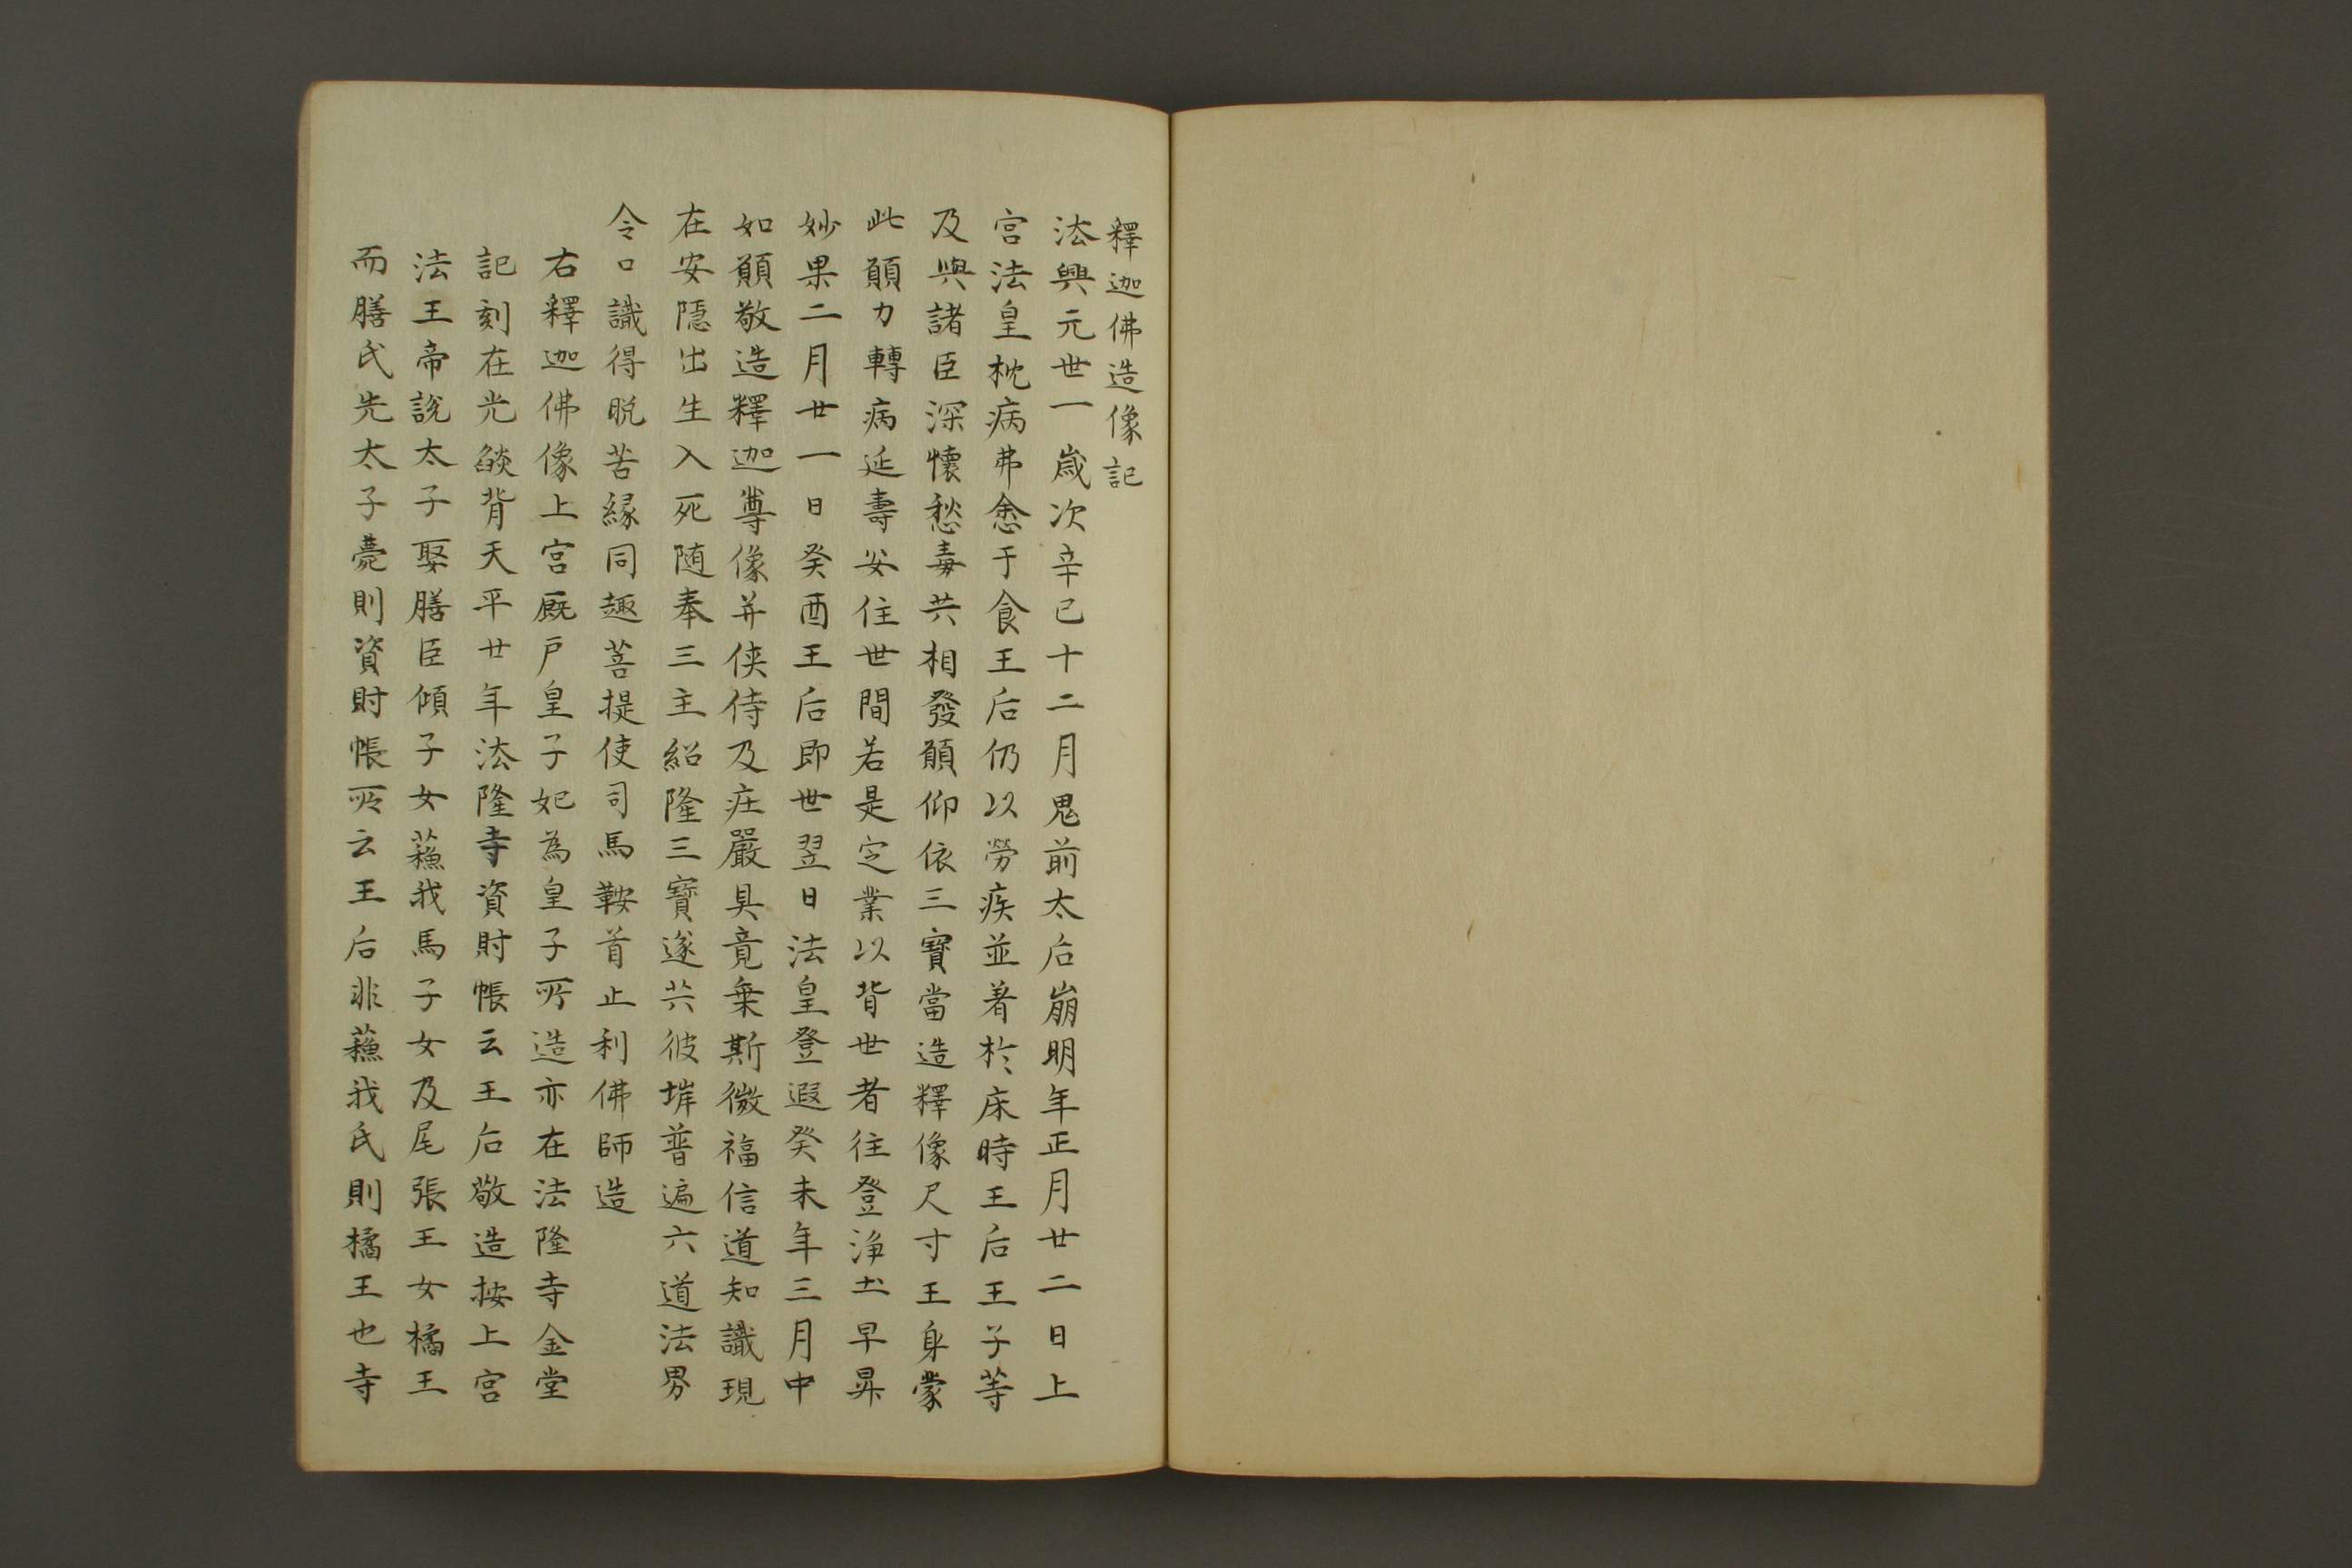 釋迦佛造像記
法興元世一歲次辛巳十二月鬼前太后崩明年正月廿二日上
宮法皇枕病弗悆于食王后仍以勞疾並著於床時王后王子等
及與諸臣深懷愁毒共相發願仰依三寶當造釋像尺寸王身蒙
此願力轉病延壽安住世間若是定業以背世者往登淨土早昇
妙果二月廿一日癸酉王后即世翌日法皇登遐癸未年三月中
如願敬造釋迦尊像并俠侍及庄嚴具竟乗斯微福信道知識現
在安隱出生入死随奉三主紹隆三寶遂共彼堓普遍六道法界
令口識得脱苦緣同趣菩提使司馬鞍首止利佛師造
右釋迦佛像上宮厩戸皇子妃為皇子所造亦在法隆寺金堂
記刻在光燄背天平廿年法隆寺資財帳云王后敬造按上宮
法王帝說太子娶膳臣傾子女蘓我馬子女及尾張王女橘王
而膳氏先太子薨則資財帳所云王后非蘓我氏則橘王也寺